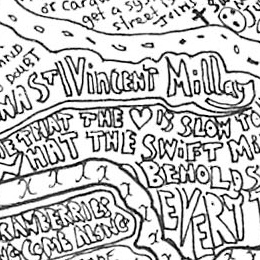 or
get a sys
street
Joins
AND
DOUBT
NA St Vincent Millay
THAT THE ♡ IS SLOW TO
WHAT THE SWIFT MI
BEHOLDS
EVERY T
RAWBERRIES
COME ALONG